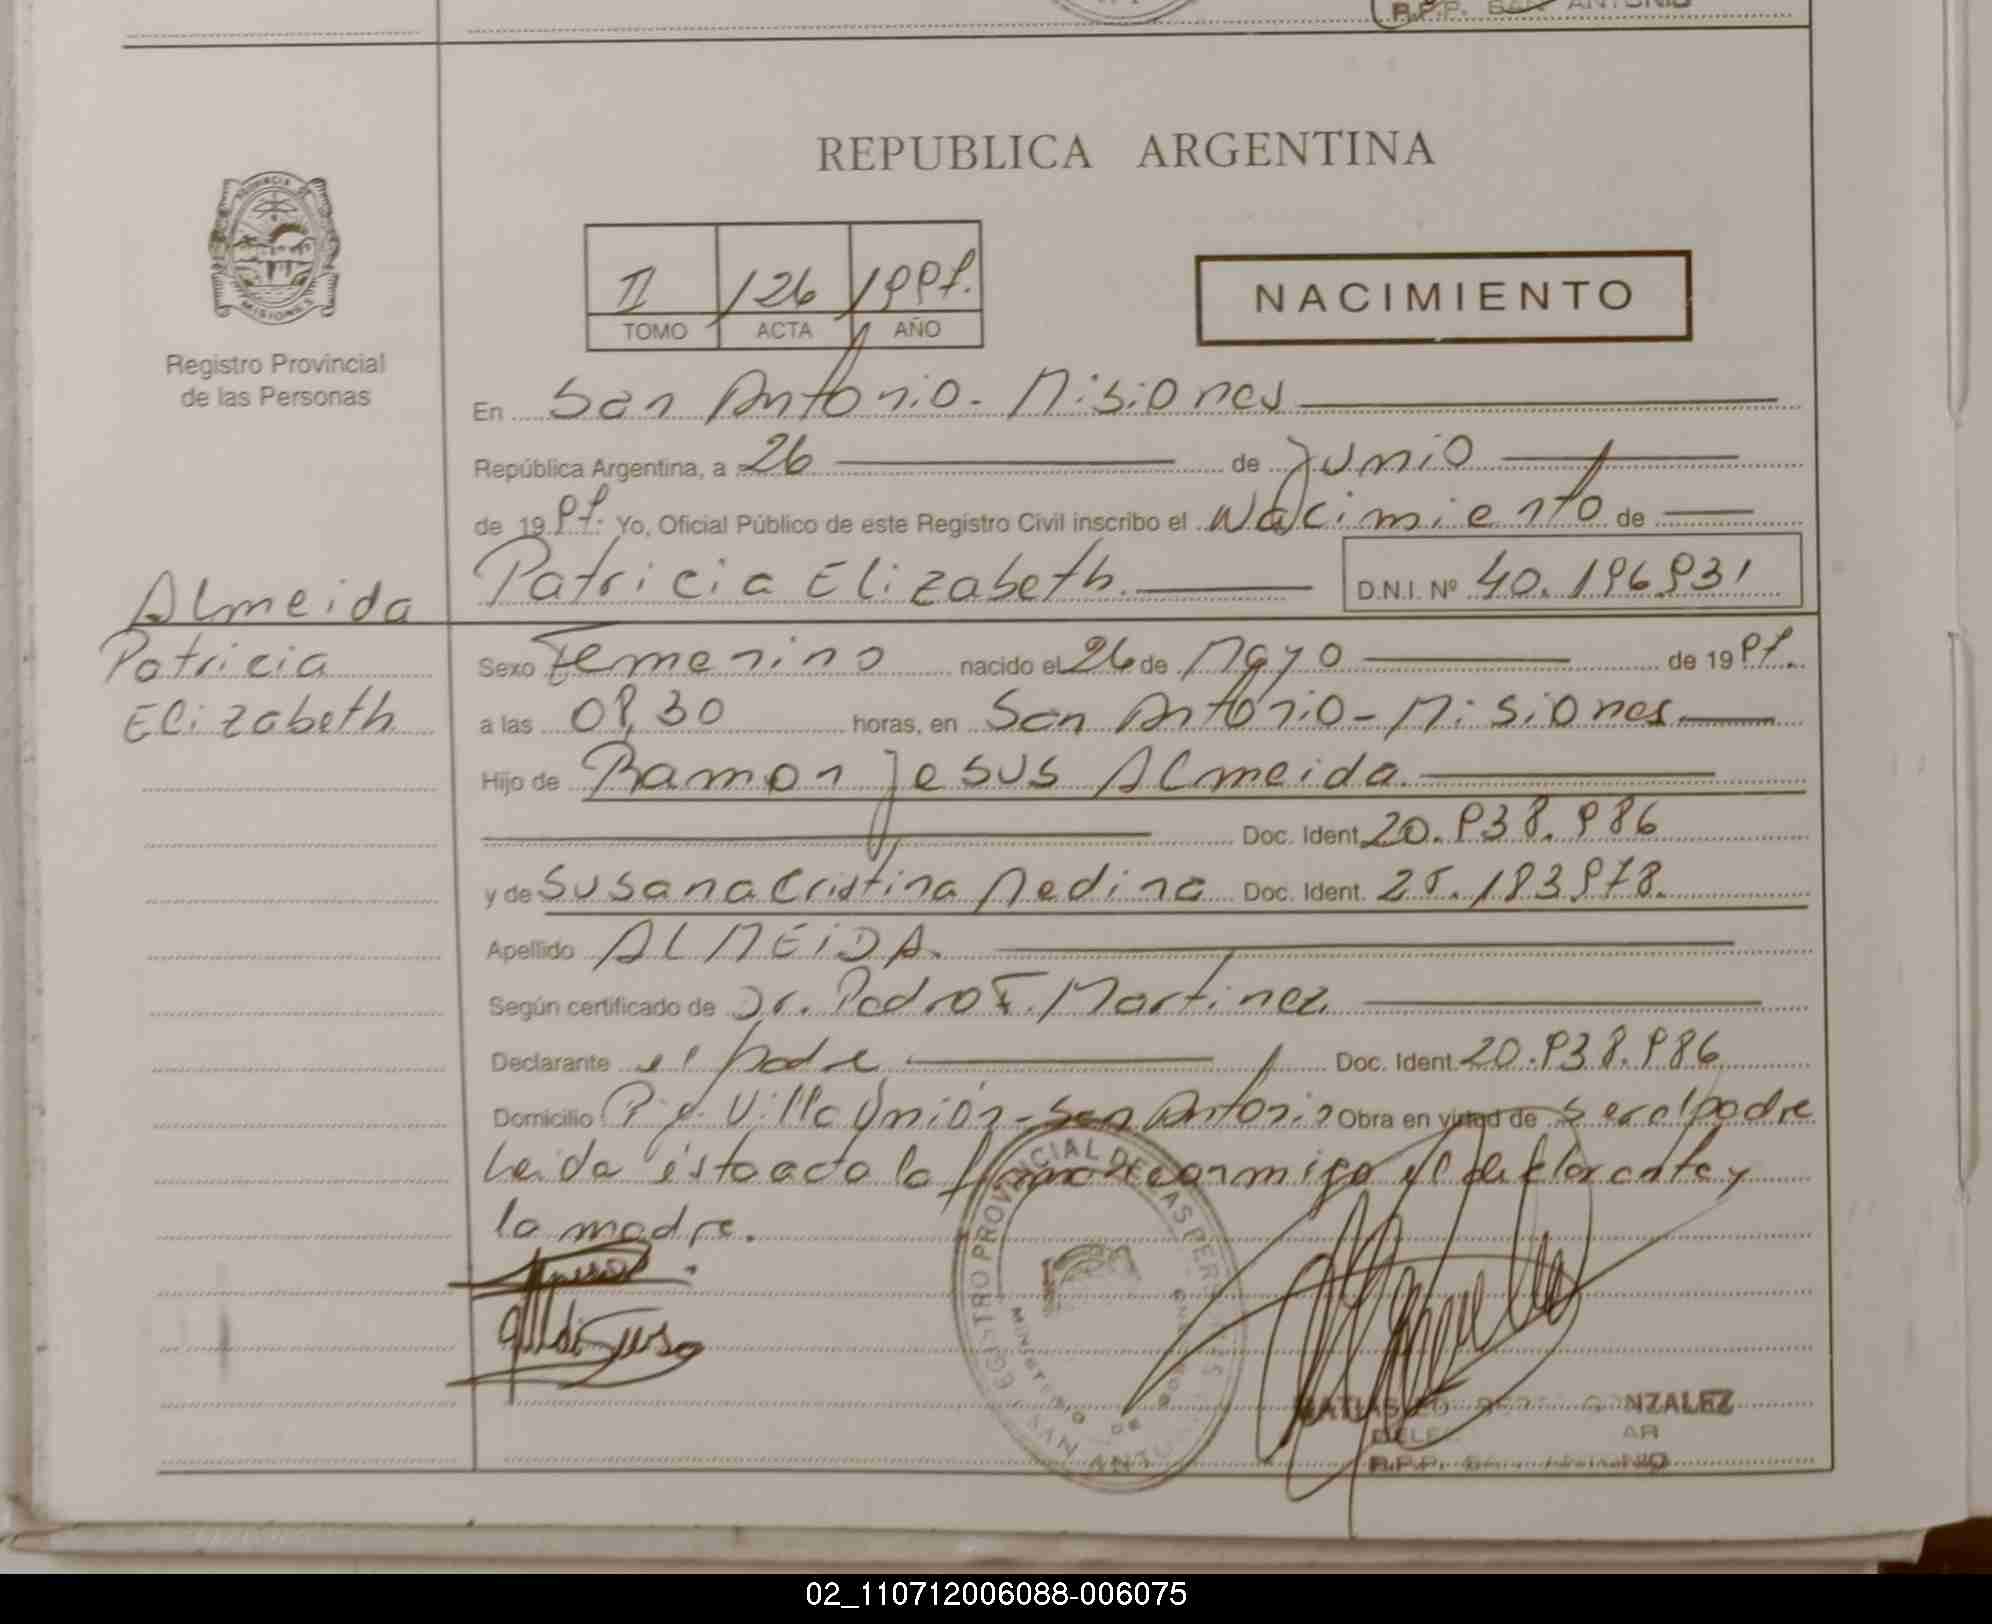 R.P.P. SAN ANTONIO
REPUBLICA ARGENTINA
PROVINCIA DE
MISIONES
Registro Provincial
de las Personas
II / 26 / 1997.
TOMO ACTA AÑO
NACIMIENTO
En San Antonio - Misiones
República Argentina, a 26 de Junio
de 1997. Yo, Oficial Público de este Registro Civil inscribo el Nacimiento de
Patricia Elizabeth. D.N.I. Nº 40.196931
Almeida
Patricia
Elizabeth
Sexo Femenino nacido el 26 de Mayo de 1997.
a las 09,30 horas, en San Antonio - Misiones
Hijo de Ramon Jesus Almeida.
Doc. Ident. 20.938.986
y de Susana Cristina Medina Doc. Ident. 25.183978.
Apellido ALMEIDA.
Según certificado de Dr. Pedro F. Martinez
Declarante el padre Doc. Ident. 20.938.986
Domicilio Pje. Villa Unión - San Antonio Obra en virtud de ser el padre
Leida ésta acta la firman conmigo el declarante y
la madre.
REGISTRO PROVINCIAL DE LAS PERSONAS
MINISTERIO DE GOB
SAN ANTONIO
MATIAS GONZALEZ
R.P.P. SAN ANTONIO
02_110712006088-006075